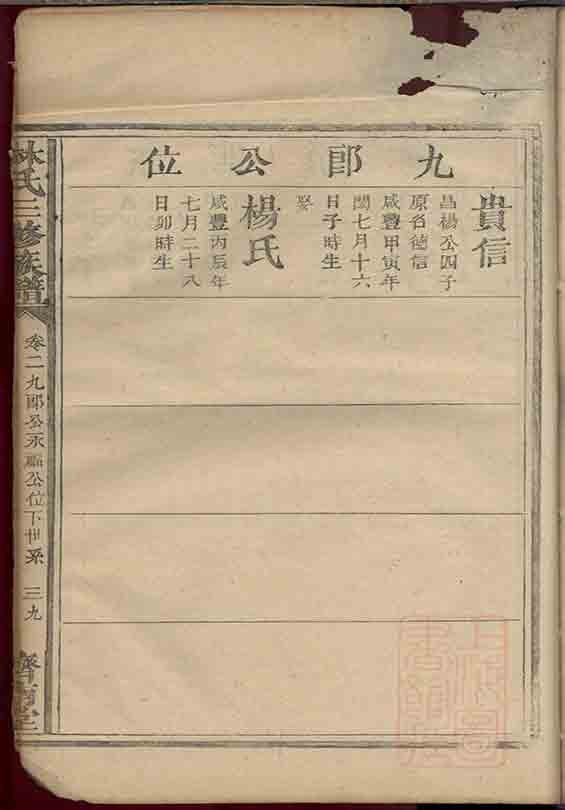 九郎公位
貴信
昌楊公四子
原名德信
咸豐甲寅年
閏七月十六
日子時生
娶
楊氏
咸豐丙辰年
七月二十八
日卯時生
林氏三修族譜
卷二九郎公永福公位下世系 三九